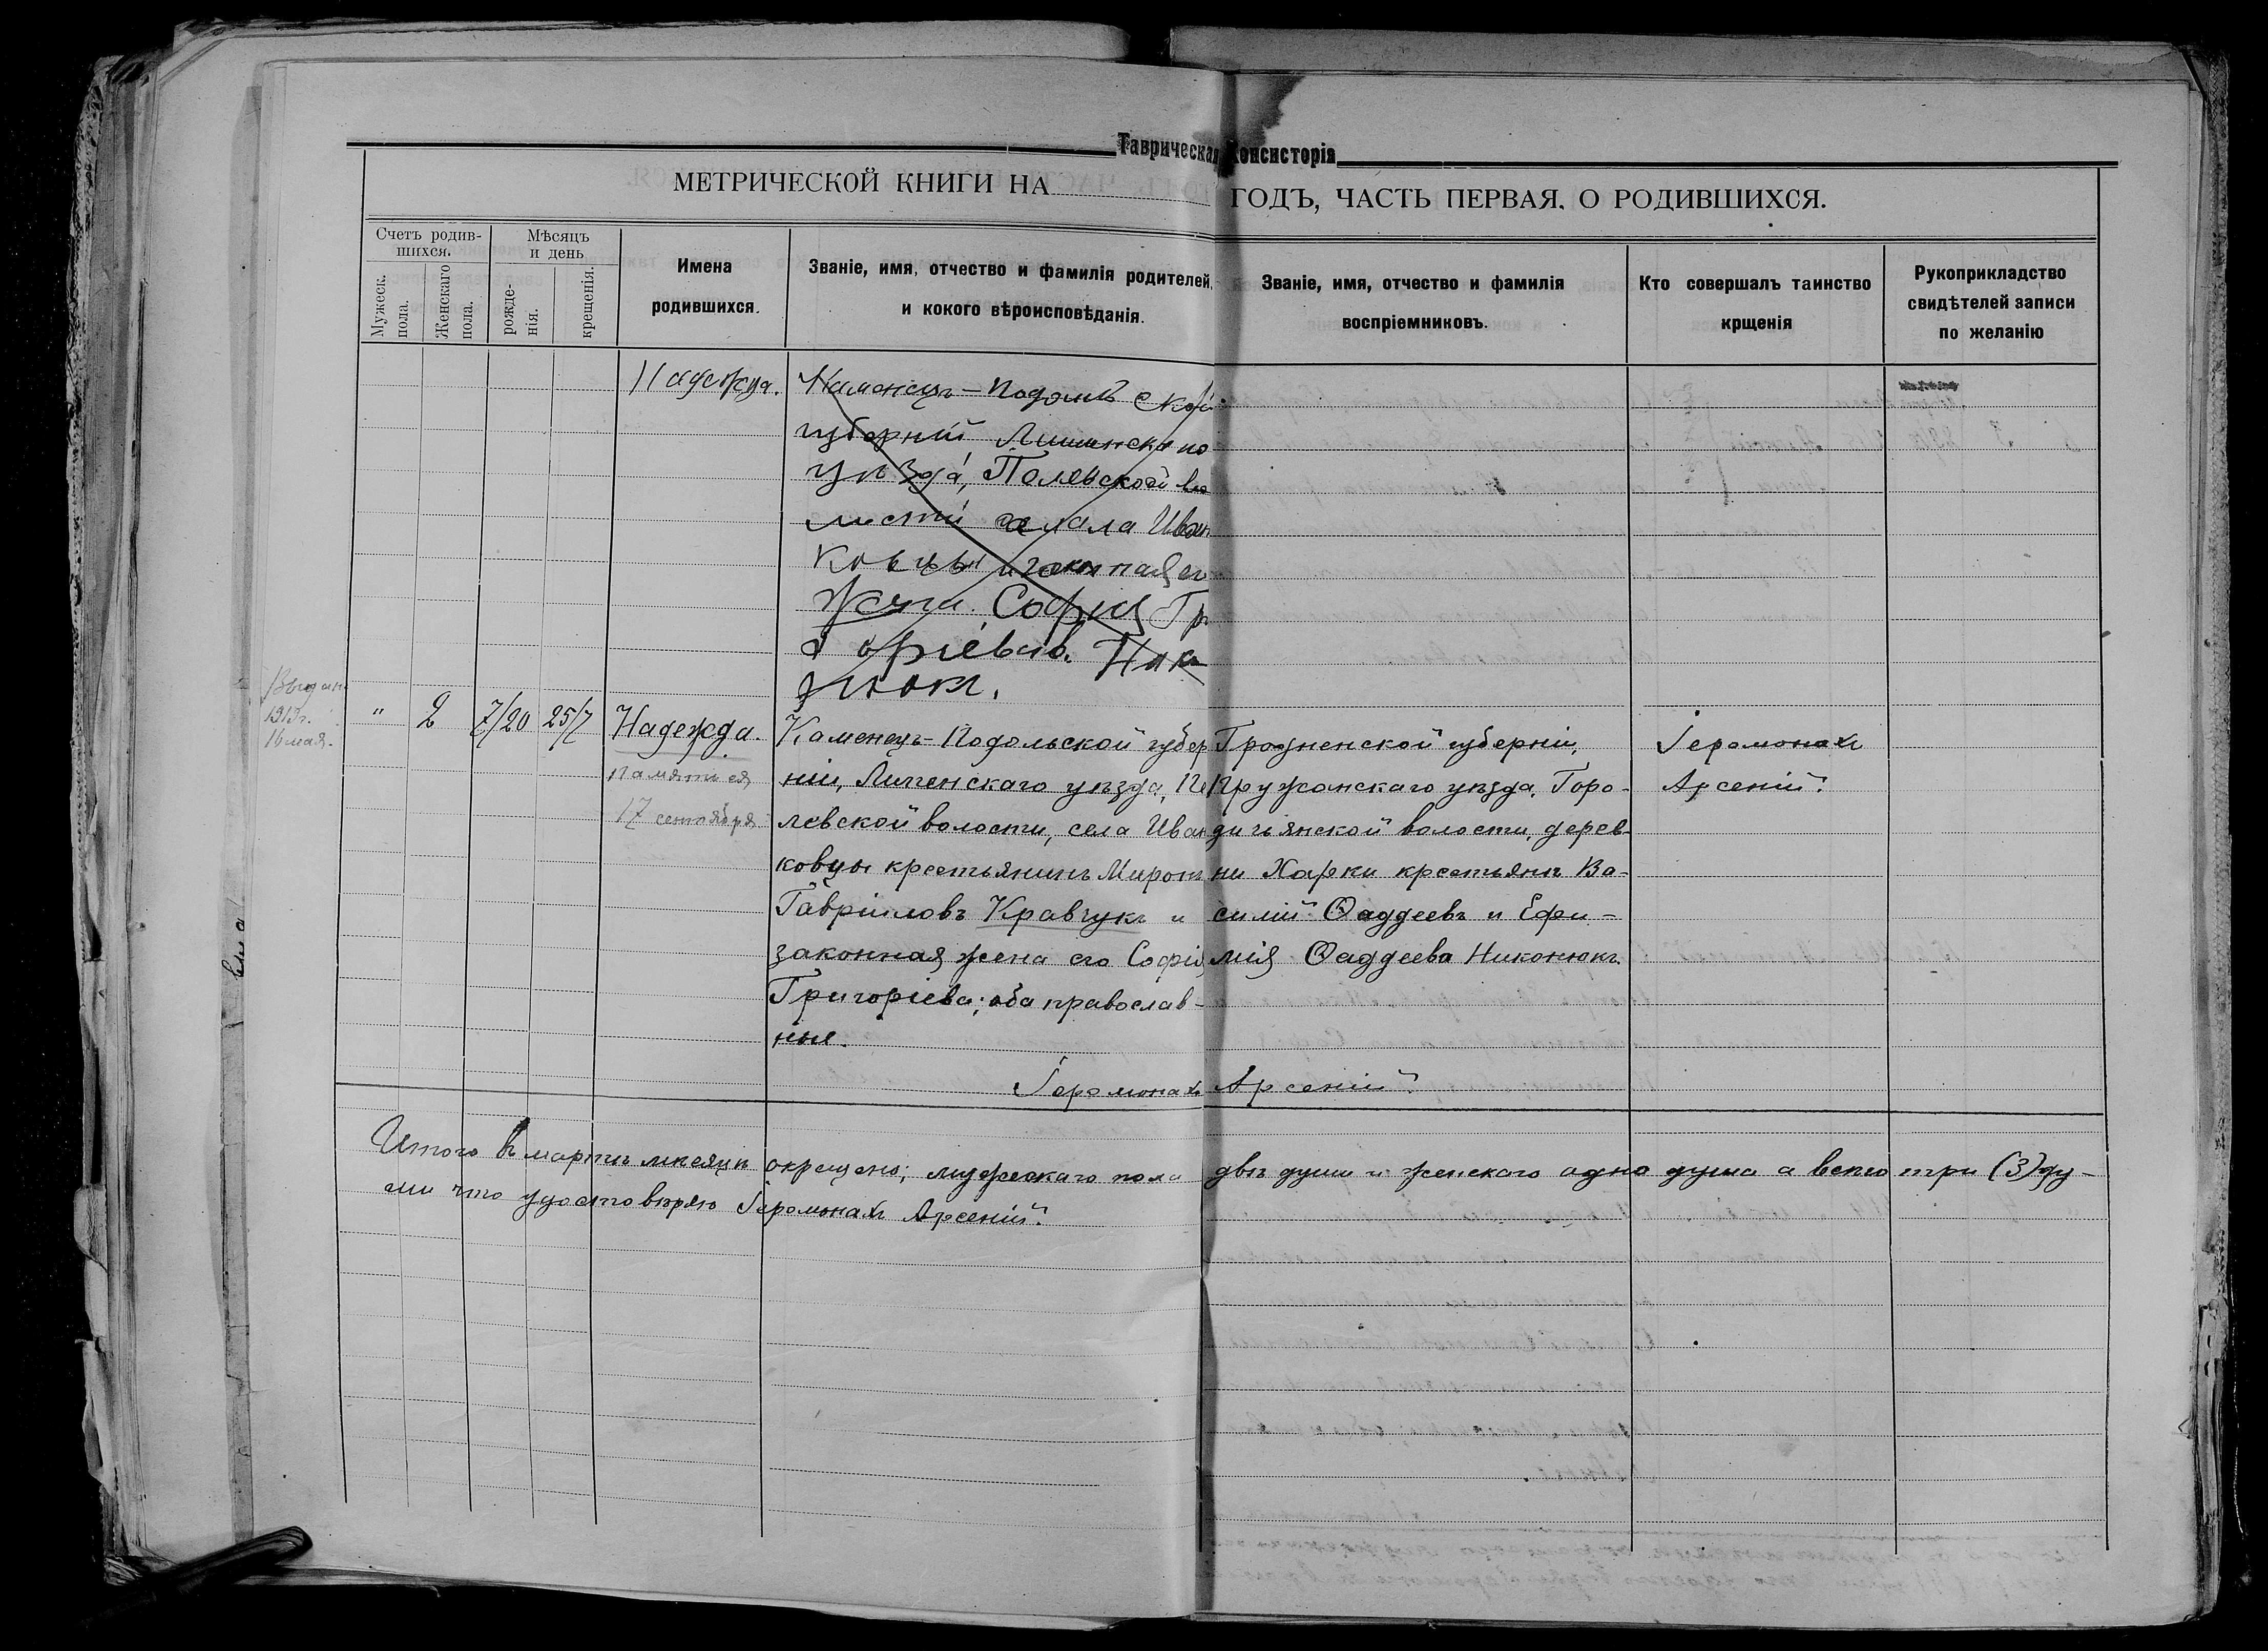 Таврическая Консисторія
МЕТРИЧЕСКОЙ КНИГИ НА ГОДЪ, ЧАСТЬ ПЕРВАЯ. О РОДИВШИХСЯ.
Счетъ родив-
шихся.
Мужеск.
пола.
Женскаго
пола.
Мѣсяцъ
и день
рожде-
нія.
крещенія.
Имена
родившихся.
Званіе, имя, отчество и фамилія родителей,
и кокого вѣроисповѣданія.
Званіе, имя, отчество и фамилія
воспріемниковъ.
Кто совершалъ таинство
крщенія
Рукоприкладство
свидѣтелей записи
по желанію
Надежда.
Каменецъ-Подольской
губерніи
уѣзда, во
лости села Иван
ковцы и законная его
жена Софія Гри
горіева.
1913 г.
16 мая.
" 2 7/20 25/7 Надежда.
Память ея
17 сентября
Каменецъ-Подольской губер
ніи, Липенскаго уѣзда, Пе
левской волости, села Иван
ковцы крестьянинъ Миронъ
Гавріиловъ Кравчукъ и
законная жена его Софія
Григоріева; оба православ-
ные.
Гродненской губерніи,
Пружанскаго уѣзда, Горо-
дичьянской волости, дерев-
ни Харки крестьянъ Ва-
силій Ѳаддеевъ и Ефи-
мія Ѳаддеева Никонюкъ.
Іеромонахъ
Арсеній.
Іеромонахъ Арсеній.
Итого въ мартѣ мѣсяцѣ окрещено; мужескаго пола двѣ души и женскаго одна душа а всего три (3) ду-
ши что удостовѣряю Іеромонахъ Арсеній.